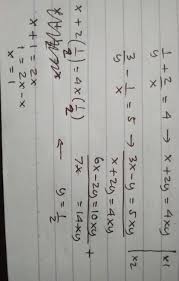 1/y + 2/x = 4 → x + 2y = 4xy | x1
3/y - 1/x = 5 → 3x - y = 5xy | x2
x + 2y = 4xy
6x - 2y = 10xy +
7x = 14xy
← y = 1/2
x + 2(1/2) = 4x(1/2)
x + 1 = 2x
1 = 2x - x
x = 1